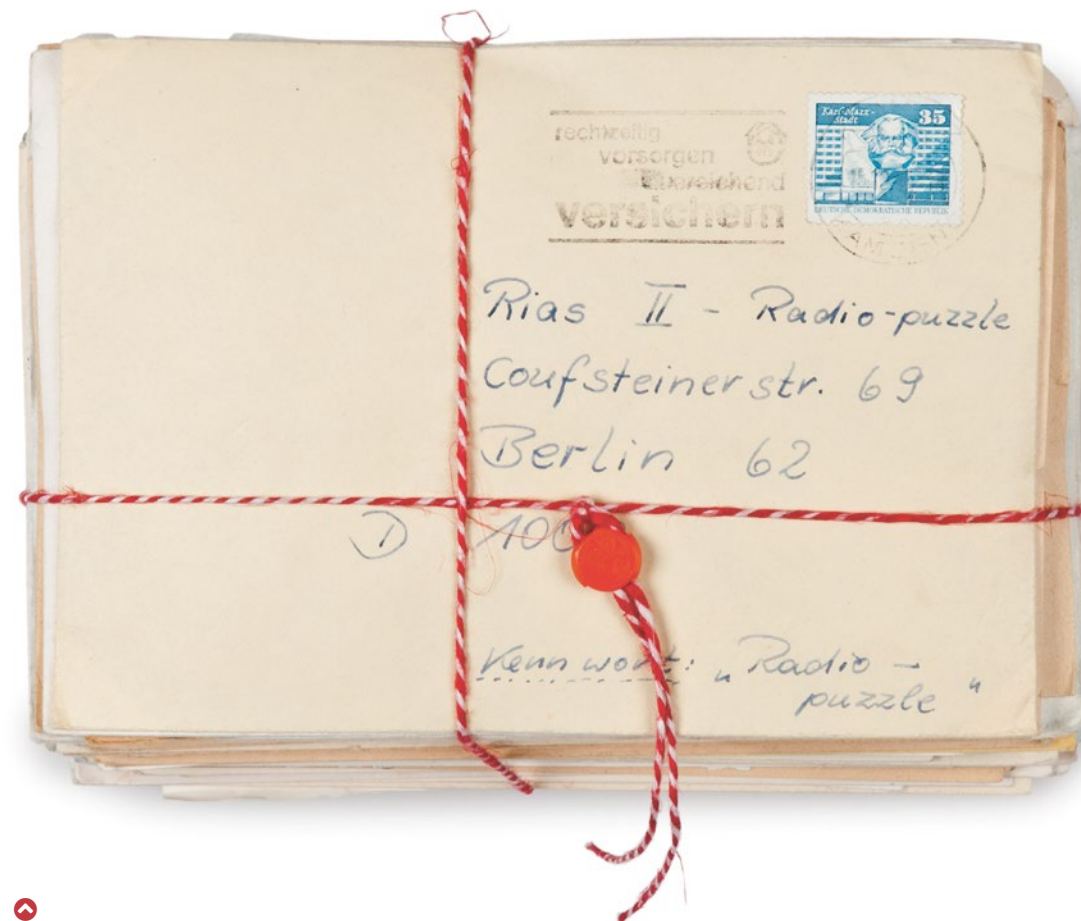 rechtzeitig
vorsorgen
versichern
Karl-Marx-
Stadt
35
DEUTSCHE DEMOKRATISCHE REPUBLIK
Rias II - Radio-puzzle
Coufsteinerstr. 69
Berlin 62
D 100
Kennwort: „Radio-
puzzle"